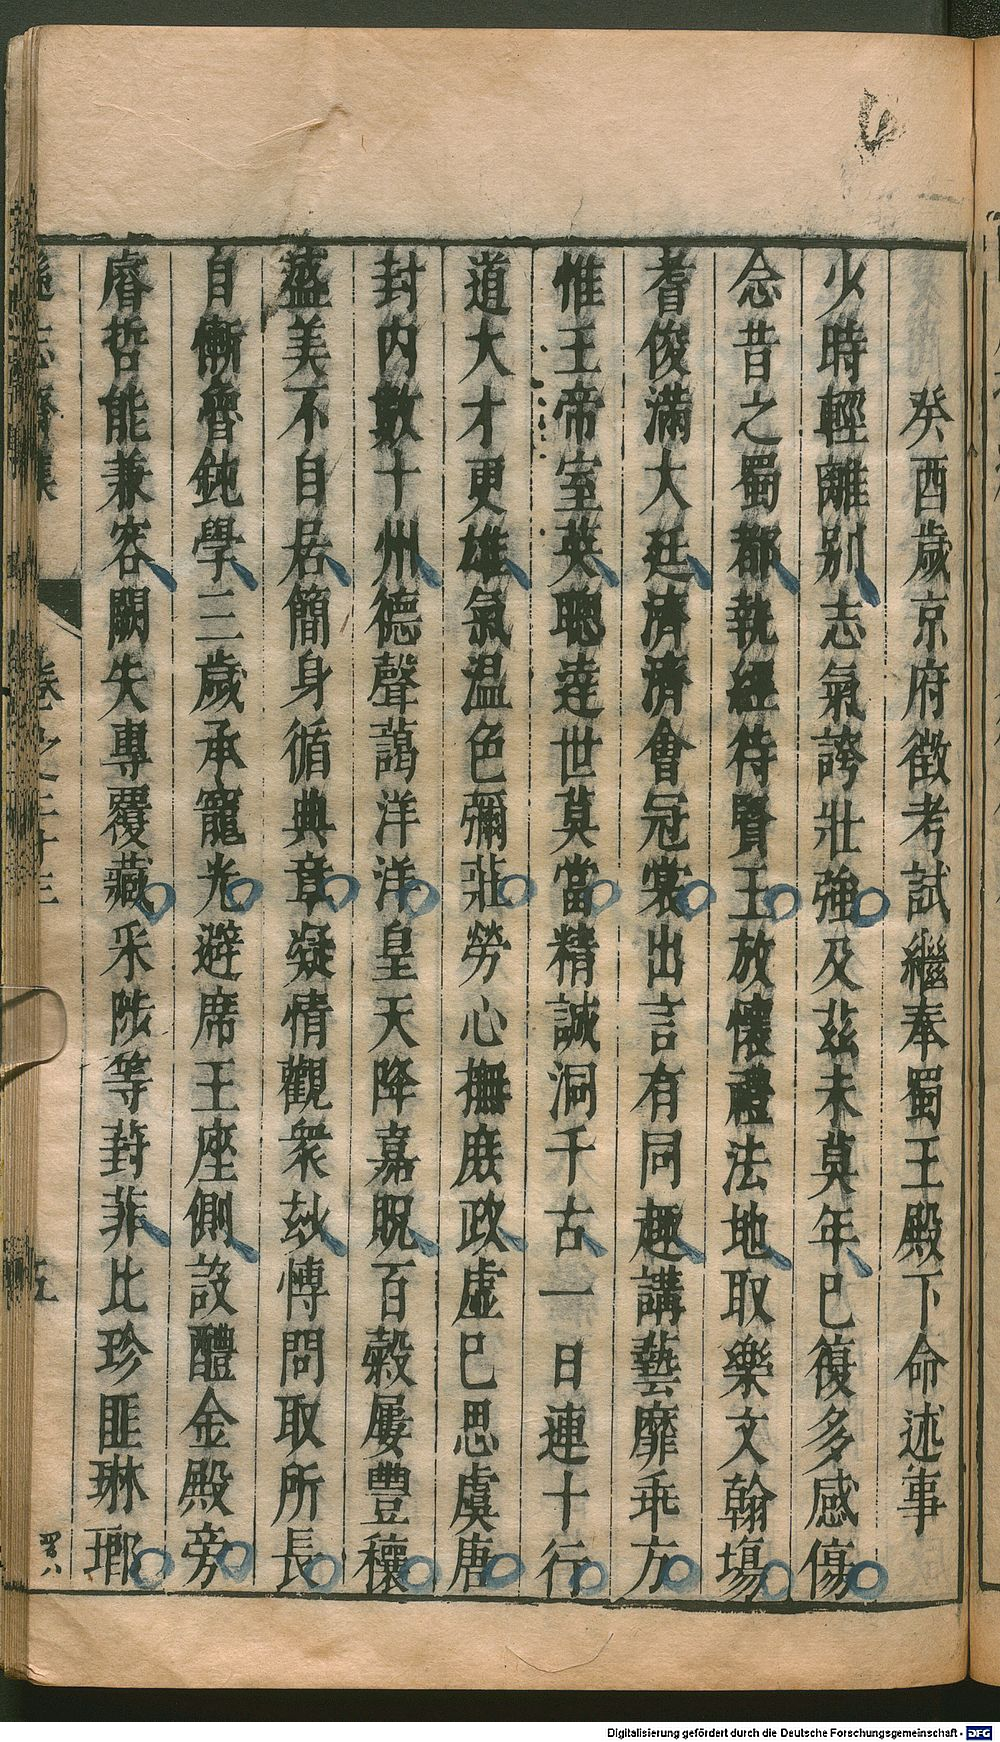 癸酉歲京府徵考試繼奉蜀王殿下命述事
少時輕離别志氣誇壯強及茲未莫年巳復多感傷
念昔之蜀郡執經待賢王放懷禮法地取樂文翰場
耆俊滿大廷濟濟會冠裳出言有同趣講藝靡乖方
惟王帝室英聰達世莫當精誠洞千古一日連十行
道大才更雄氣温色彌莊勞心撫庶政虛巳思虞唐
封内數十州德聲藹洋洋皇天降嘉貺百糓屢豐穰
盛美不自居簡身循典章凝情觀衆妙慱問取所長
自慚膚鈍學三歲承寵光避席王座側設醴金殿旁
睿哲能兼容闕失專覆藏采陟等葑菲比珍匪琳瑯
遜志齋集
卷之二十三
五
Digitalisierung gefördert durch die Deutsche Forschungsgemeinschaft - DFG